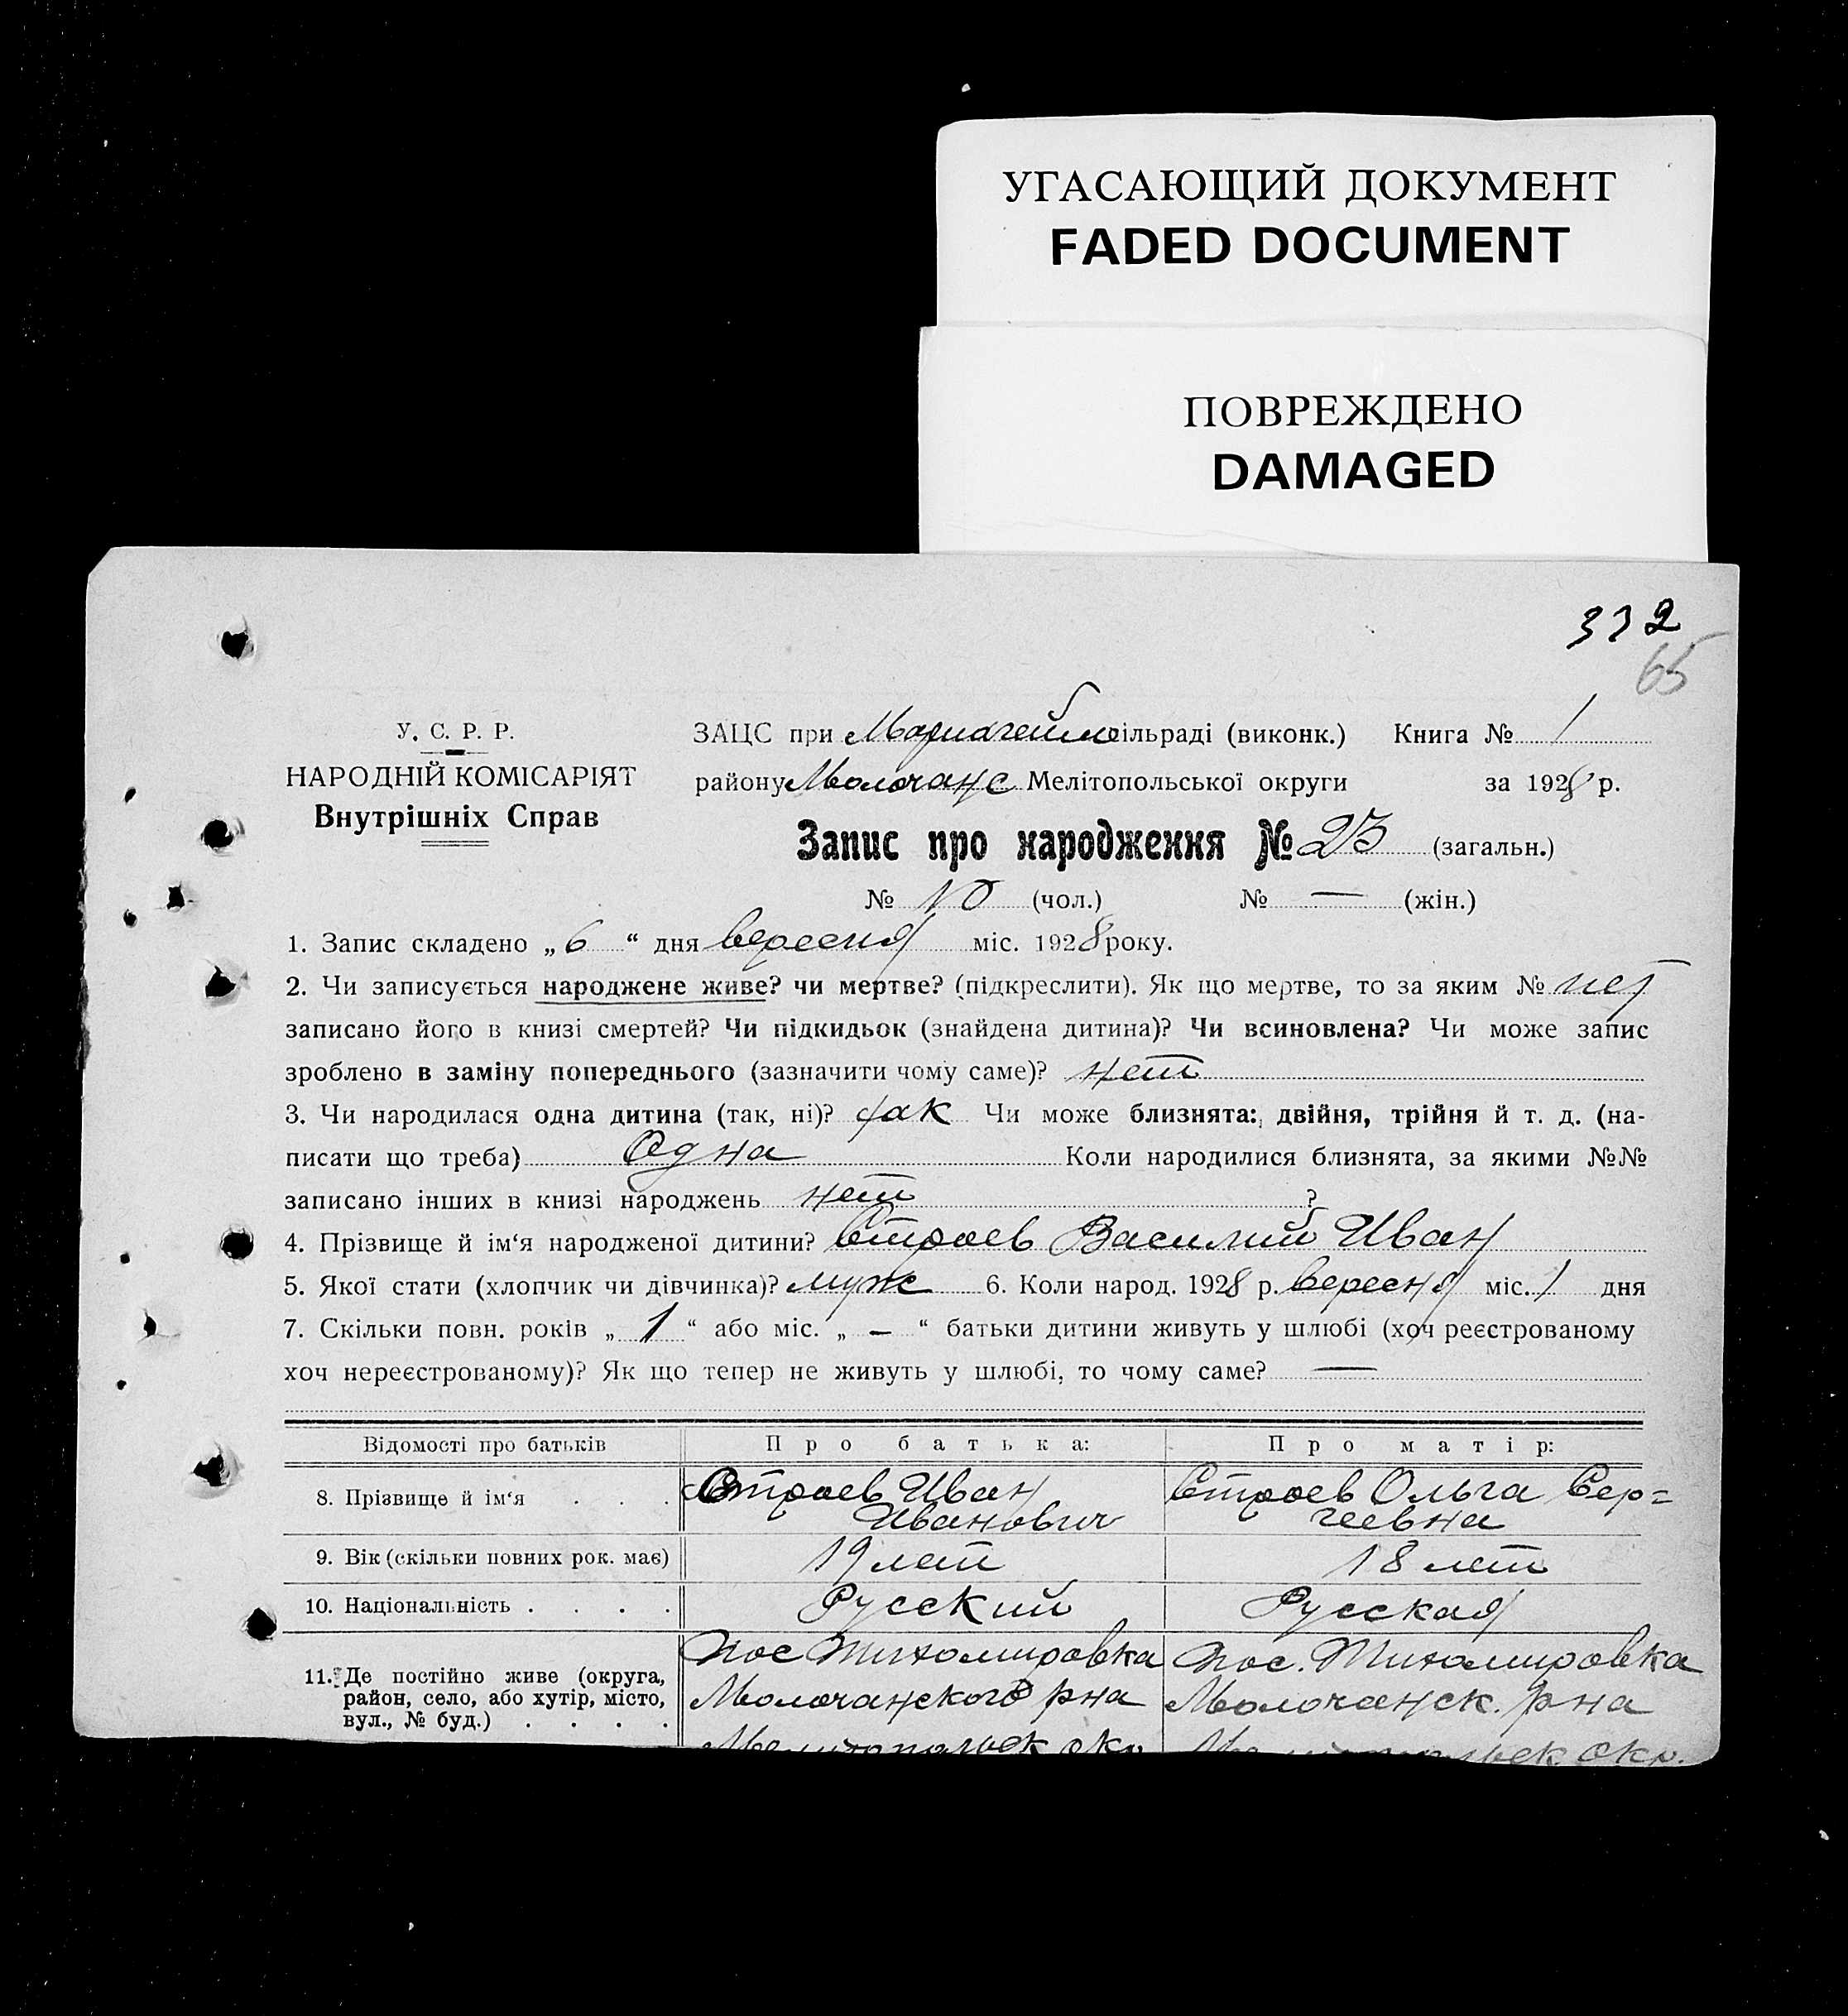 УГАСАЮЩИЙ ДОКУМЕНТ
FADED DOCUMENT
ПОВРЕЖДЕНО
DAMAGED
332
65
У. С. Р. Р.
НАРОДНІЙ КОМІСАРІЯТ
Внутрішніх Справ
ЗАЦС при сільраді (виконк.) Книга № 1
району Молочанс Мелітопольської округи за 1928 р.
Запис про народження № 23 (загальн.)
№ 10 (чол.) № — (жін.)
1. Запис складено „6“ дня вересня міс. 1928 року.
2. Чи записується народжене живе? чи мертве? (підкреслити). Як що мертве, то за яким № нет
записано його в книзі смертей? Чи підкидьок (знайдена дитина)? Чи всиновлена? Чи може запис
зроблено в заміну попереднього (зазначити чому саме)? нет
3. Чи народилася одна дитина (так, ні)? так Чи може близнята: двійня, трійня й т. д. (на-
писати що треба) Одна Коли народилися близнята, за якими №№
записано інших в книзі народжень нет ?
4. Прізвище й ім‘я народженої дитини? Строев Василий Иван
5. Якої стати (хлопчик чи дівчинка)? муж 6. Коли народ. 1928 р. вересня міс. 1 дня
7. Скільки повн. років „ 1 “ або міс. „ — “ батьки дитини живуть у шлюбі (хоч реєстрованому
хоч нереєстрованому)? Як що тепер не живуть у шлюбі, то чому саме? —
Відомості про батьків Про батька: Про матір:
8. Прізвище й ім‘я . . . Строев Иван Строев Ольга Сер=
Иванович геевна
9. Вік (скільки повних рок. має) 19 лет 18 лет
10. Національність . . . . Русский Русская
11. Де постійно живе (округа, пос Тихомировка пос. Тихомировка
район, село, або хутір, місто, Молочанского рна Молочанск. рна
вул., № буд.) . . . . Мелитопольск окр Мелитопольск. окр.